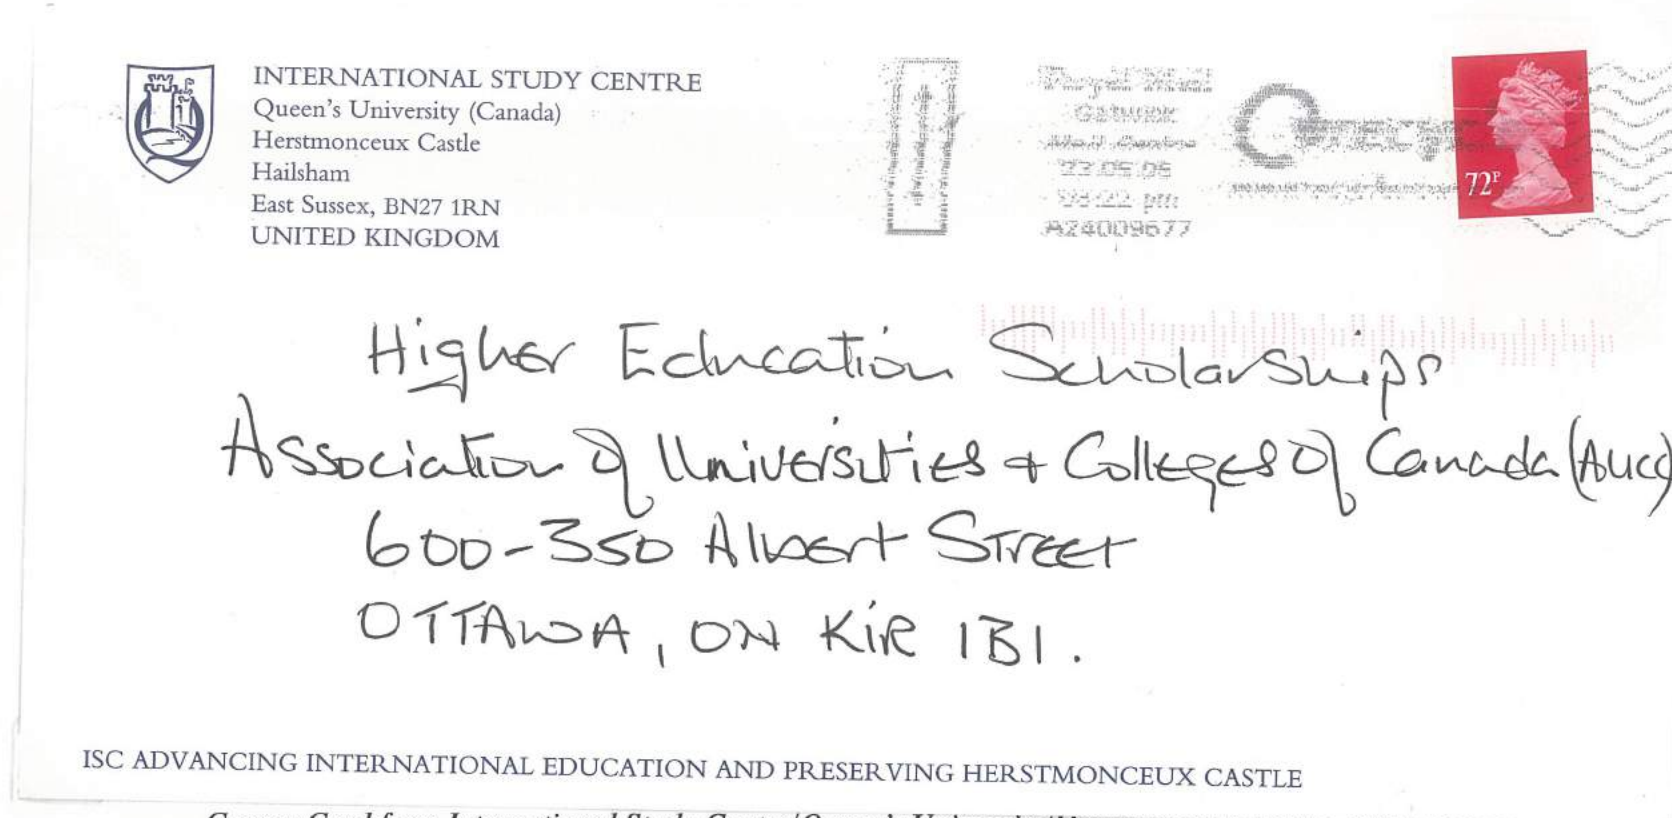 INTERNATIONAL STUDY CENTRE
Queen's University (Canada)
Herstmonceux Castle
Hailsham
East Sussex, BN27 1RN
UNITED KINGDOM
Royal Mail
Gatwick
Mail Centre
A24009677
72P
Higher Education Scholarships
Association of Universities + Colleges of Canada (AUCC)
600-350 Albert Street
OTTAWA, ON K1R 1B1.
ISC ADVANCING INTERNATIONAL EDUCATION AND PRESERVING HERSTMONCEUX CASTLE